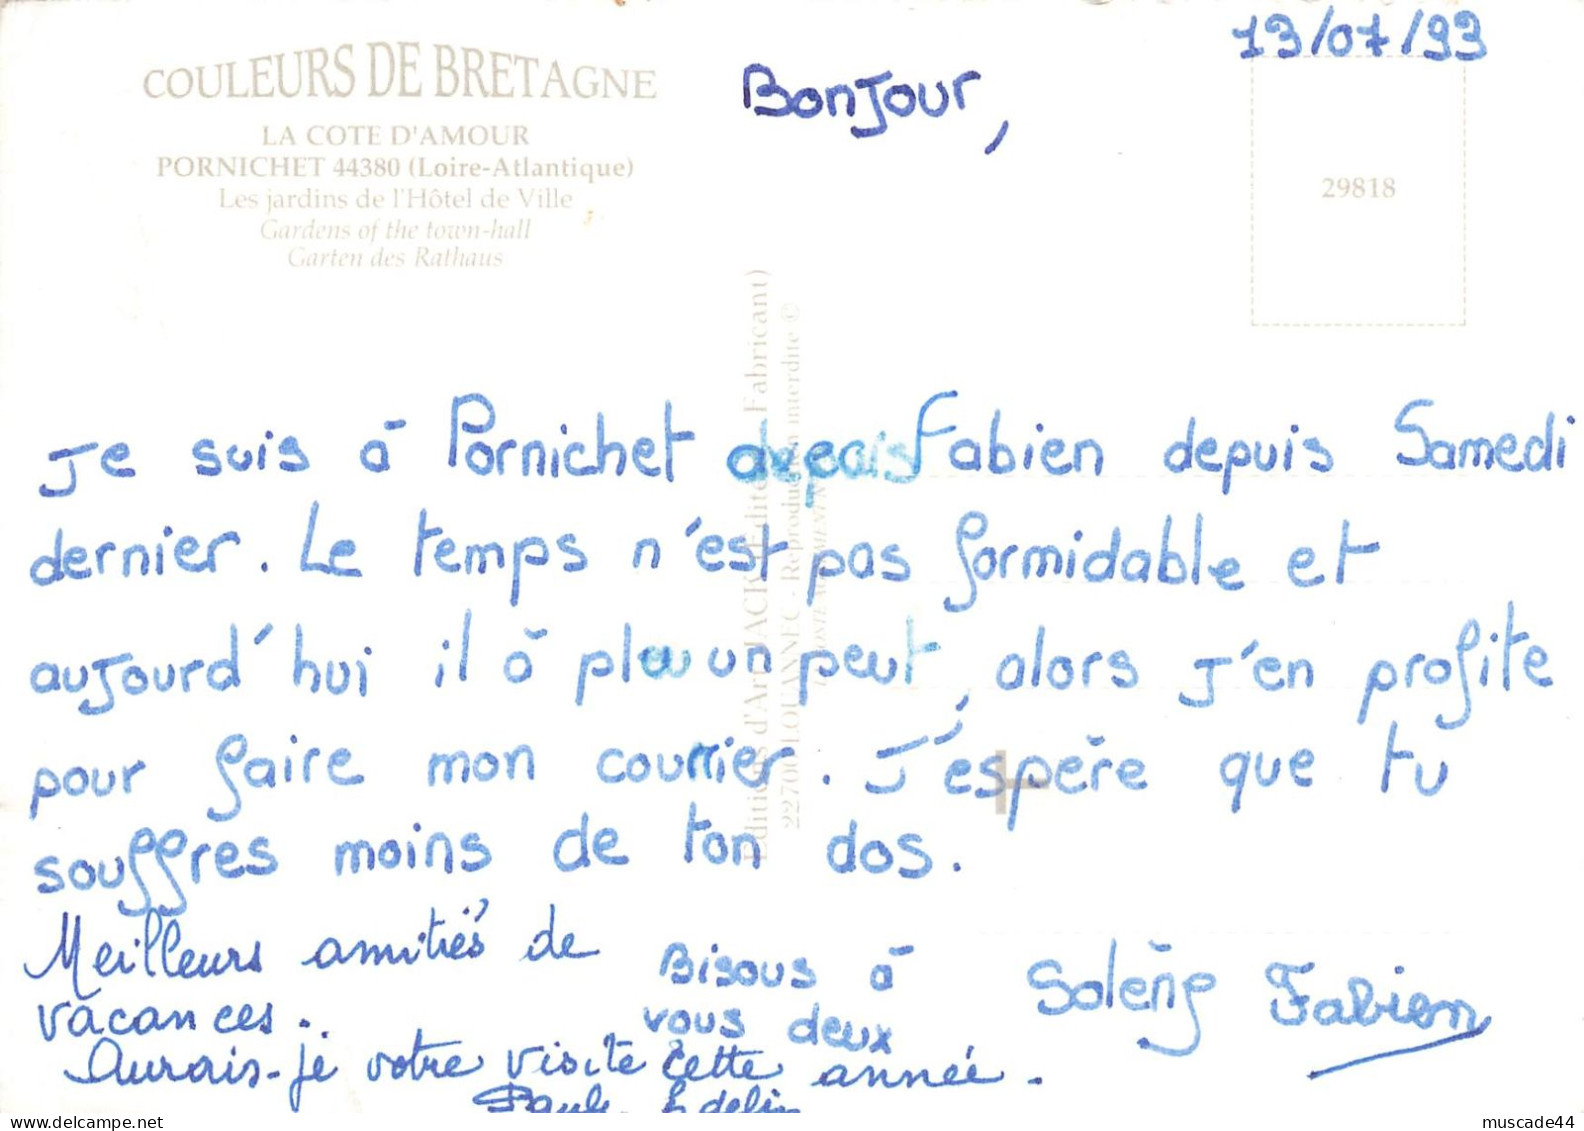 13/07/93
COULEURS DE BRETAGNE
LA COTE D'AMOUR
PORNICHET 44380 (Loire-Atlantique)
Les jardins de l'Hôtel de Ville
Gardens of the town-hall
Garten des Rathaus
Bonjour,
29818
Editions d'Art JACK (Editeur Fabricant)
22700 LOUANNEC - Reproduction interdite ©
Je suis à Pornichet Fabien depuis Samedi
dernier. Le temps n'est pas formidable et
aujourd'hui il à plu un peut, alors j'en profite
pour faire mon courrier. J'espère que tu
souffres moins de ton dos.
Meilleurs amitiés de
vacances.
Bisous à
vous deux
Solèng Fabien
Aurais-je votre visite cette année.
muscade44